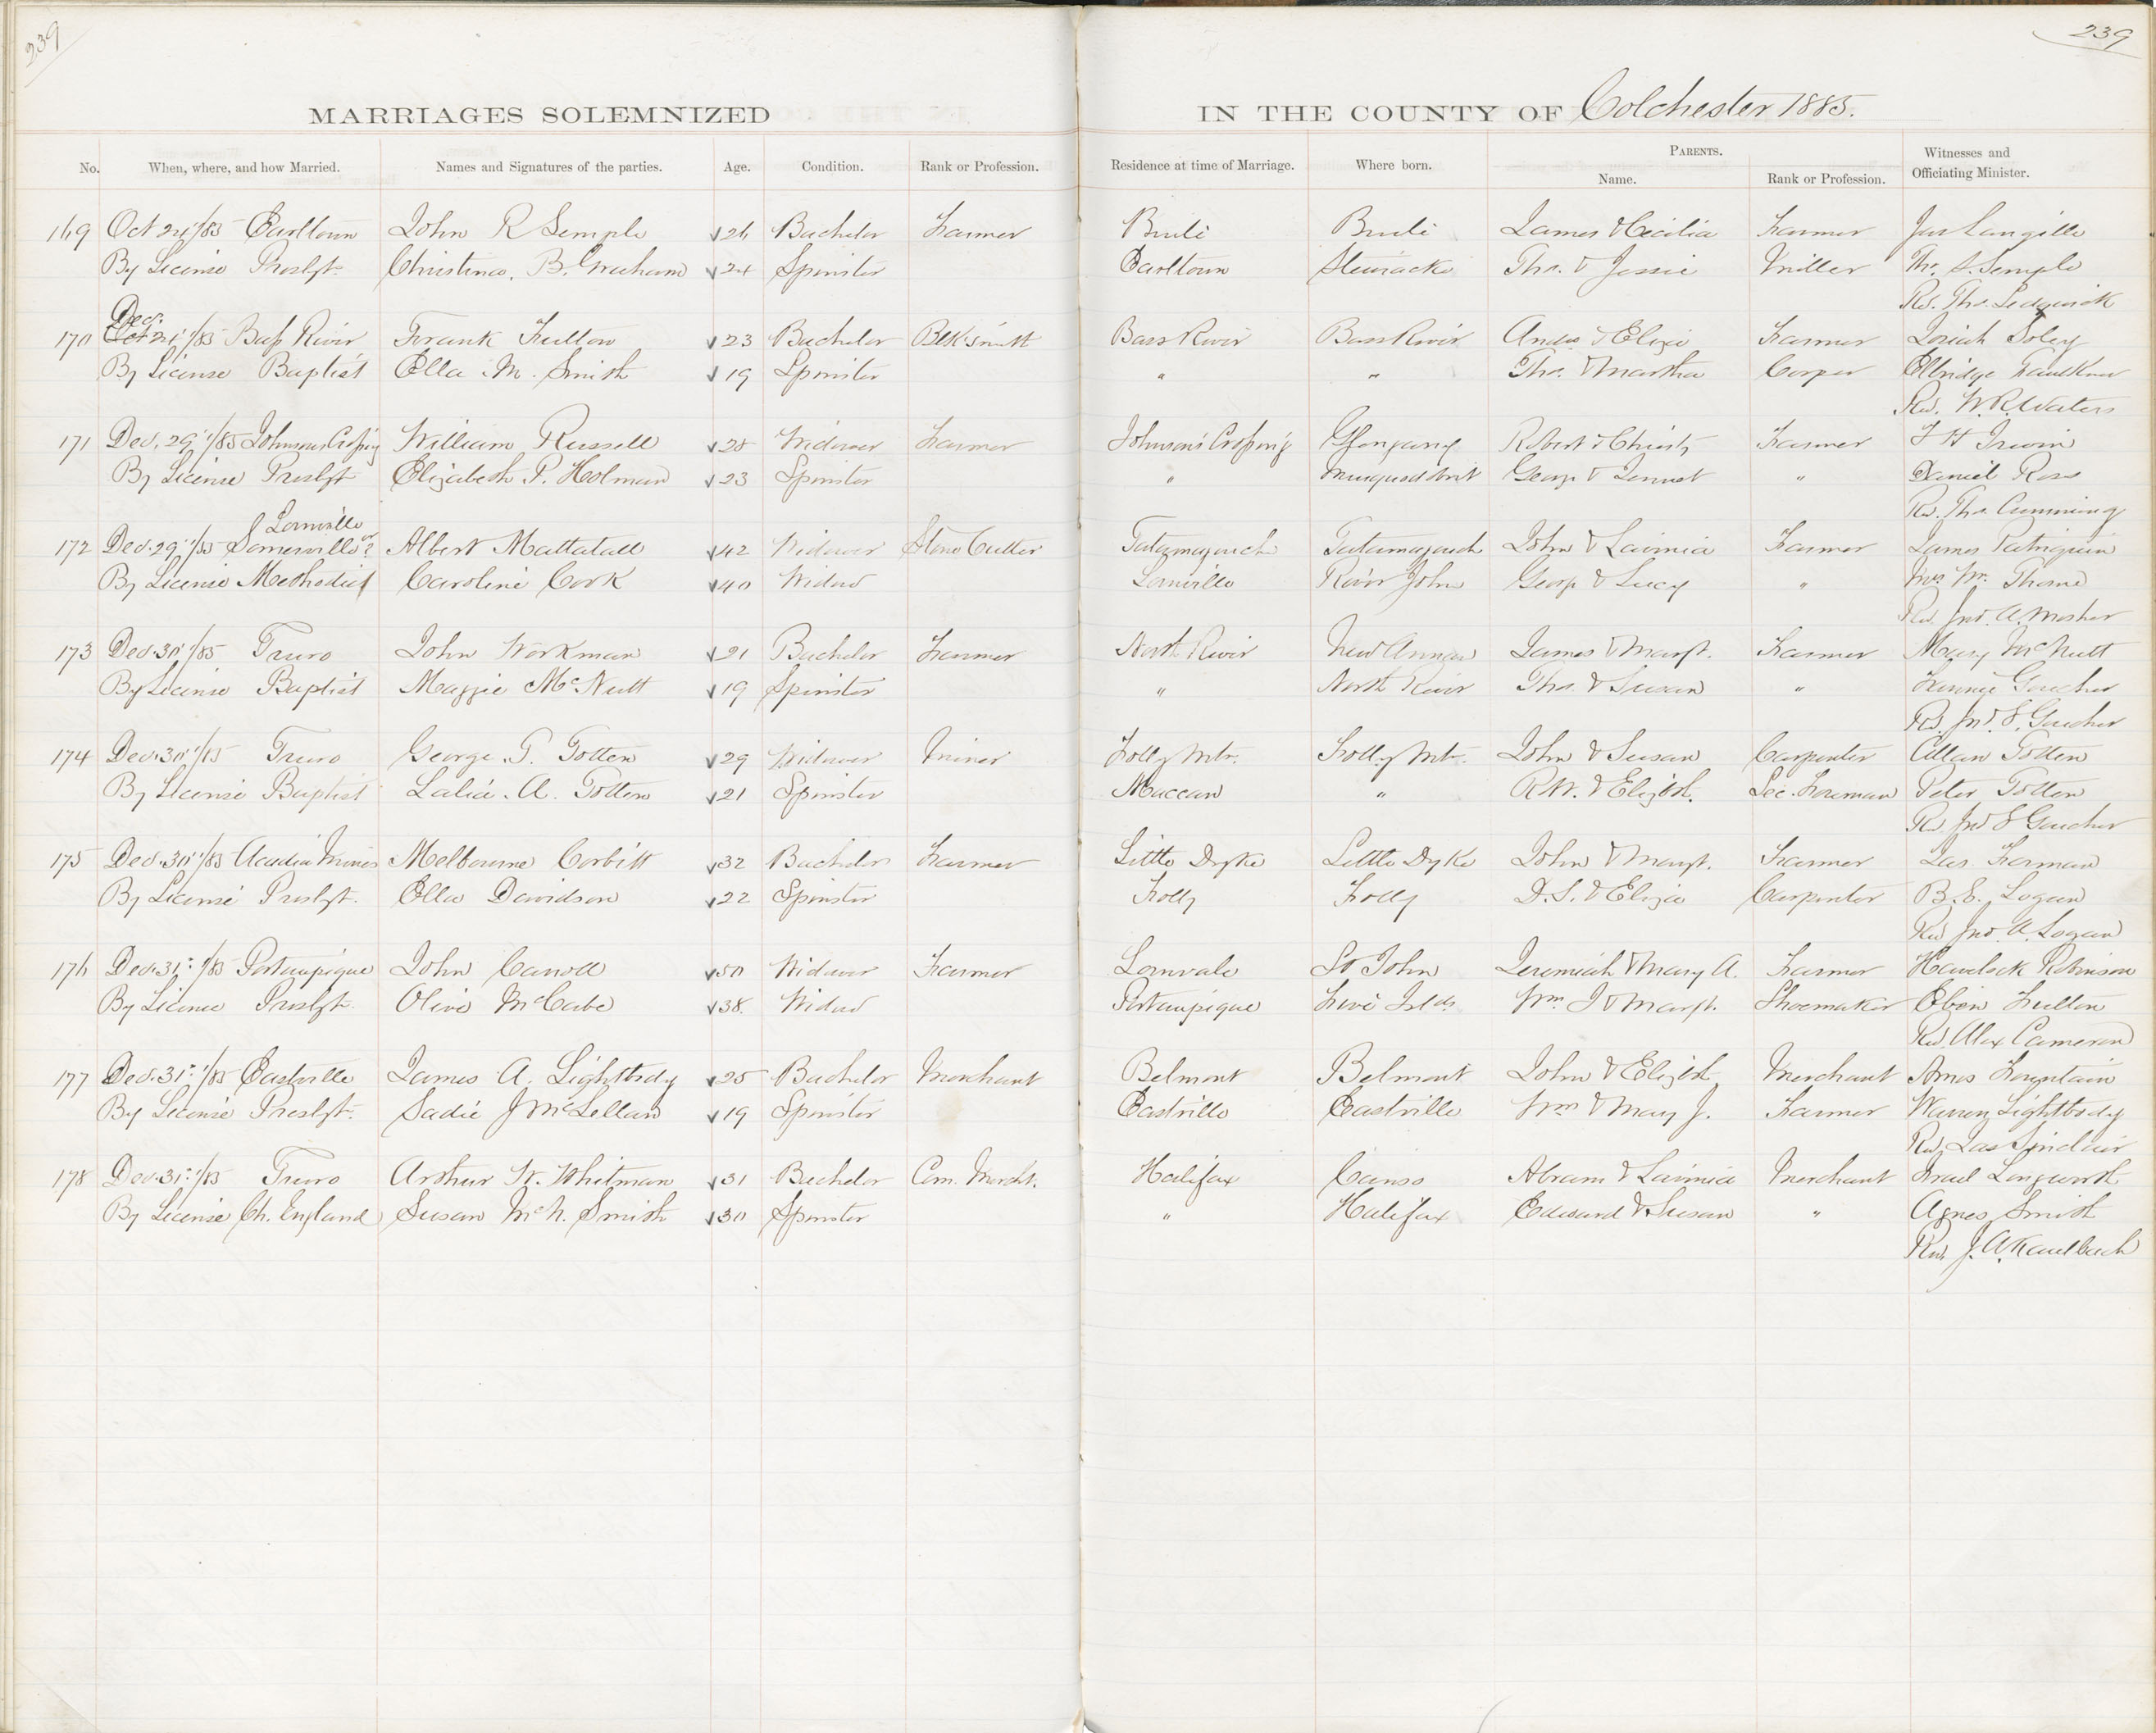 239
239
MARRIAGES SOLEMNIZED IN THE COUNTY OF Colchester 1885.
No. When, where, and how Married. Names and Signatures of the parties. Age. Condition. Rank or Profession. Residence at time of Marriage. Where born. PARENTS. Name. Rank or Profession. Witnesses and Officiating Minister.
169 Oct 21/85 Earltown John R Semple 26 Bachelor Farmer Brule Brule James & Cecilia Farmer Jas Langille
By License Presbyt. Christina. B. Graham 24 Spinster Earltown Stewiacke Tho. & Jessie Miller Tho. S. Semple
Rev. Tho. Sedgwick
Dec.
170 Oct 21/85 Bass River Frank Fulton 23 Bachelor Blksmith Bass River Bass River Andw & Eliza Farmer Josiah Soley
By License Baptist Ella M. Smith 19 Spinster " " Tho. & Martha Carper Elbridge Faulkner
Rev. W. R. Waters
171 Dec. 29/85 Johnsons Crossing William Russell 28 Widower Farmer Johnson's Crossing Glengarry Robert & Christy Farmer J H Irwin
By License Presbyt Elizabeth P. Holman 23 Spinster " Musquodobit George & Jennet " Daniel Ross
Rev. Tho. Cumming
Lornville or
172 Dec. 29/85 Somerville? Albert Mattatall 42 Widower Stone Cutter Tatamagouche Tatamagouch John & Lavinia Farmer James Patriquin
By License Methodist Caroline Cook 40 Widow Lornville River John George & Lucy " Mrs Wm. Thorne
Rev Jno. A. Mosher
173 Dec. 30/85 Truro John Workman 21 Bachelor Farmer North River New Annan James & Margt. Farmer Mary McNutt
By License Baptist Maggie McNutt 19 Spinster " North River Tho. & Susan " Fannie Goucher
Rev. Jno. E. Goucher
174 Dec. 30/85 Truro George. T. Totten 29 Widower Miner Folly Mtn. Folly Mtn. John & Susan Carpenter Allan Totten
By License Baptist Lalia. A. Totten 21 Spinster Maccan " R. W. & Elizbth. Sec. Foreman Peter Totten
Rev Jno E Goucher
175 Dec. 30/85 Acadia Mines Melbourne Corbitt 32 Bachelor Farmer Little Dyke Little Dyke John & Margt. Farmer Jas. Forman
By License Presbyt. Ella Davidson 22 Spinster Folly Folly D. S. & Eliza Carpenter B. E. Logan
Rev Jno. A. Logan
176 Dec. 31/85 Portaupique John Carroll 50 Widower Farmer Lornvale St John Jeremiah & Mary A. Farmer Havelock Robinson
By License Presbyt. Olive McCabe 38. Widow Portaupique Five Islds Wm. J & Margt. Shoemaker Eben Fulton
Rev Alex Cameron
177 Dec. 31/85 Eastville James A. Lightbody 25 Bachelor Merchant Belmont Belmont John & Elizbth Merchant Amos Fountain
By License Presbyt. Sadie J McLellan 19 Spinster Eastville Eastville Wm & Mary J. Farmer Warren Lightbody
Rev. Jas Sinclair
178 Dec. 31/85 Truro Arthur W. Whitman 31 Bachelor Com. Mercht. Halifax Canso Abram & Lavinia Merchant Israel Longworth
By License Ch. England Susan McN. Smith 30 Spinster " Halifax Edward & Susan " Agnes Smith
Rev J. A. Kaulbach